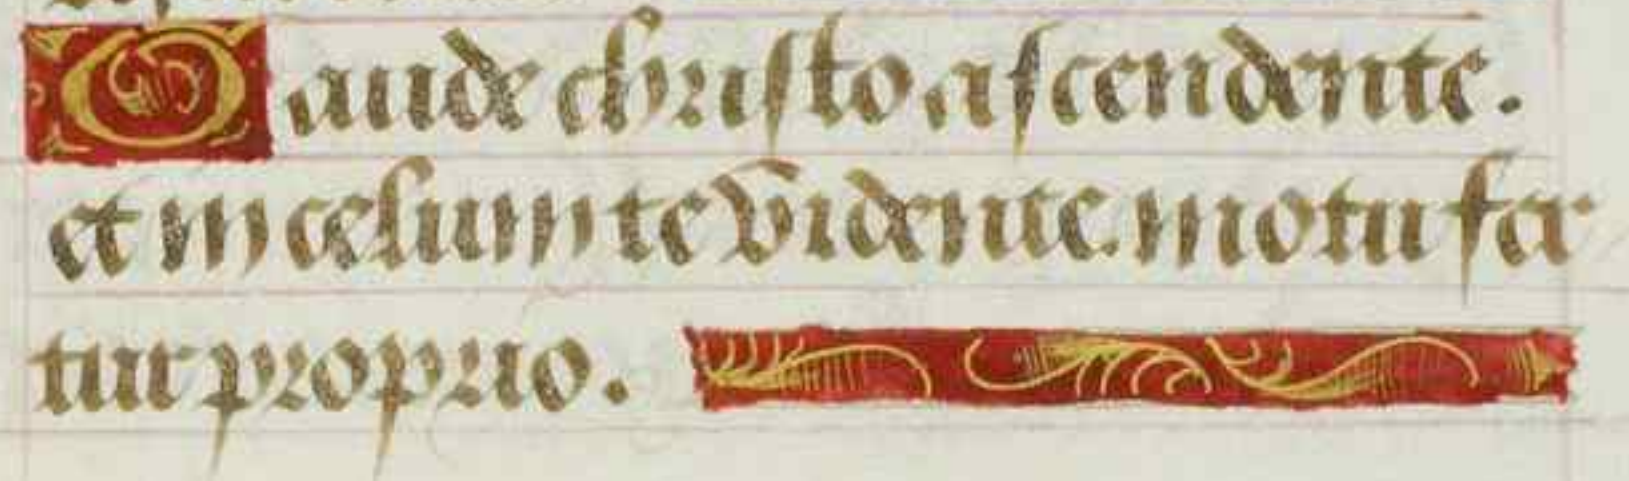 Gaude christo ascendente.
et in celum te vidente. motu fer
tur proprio.